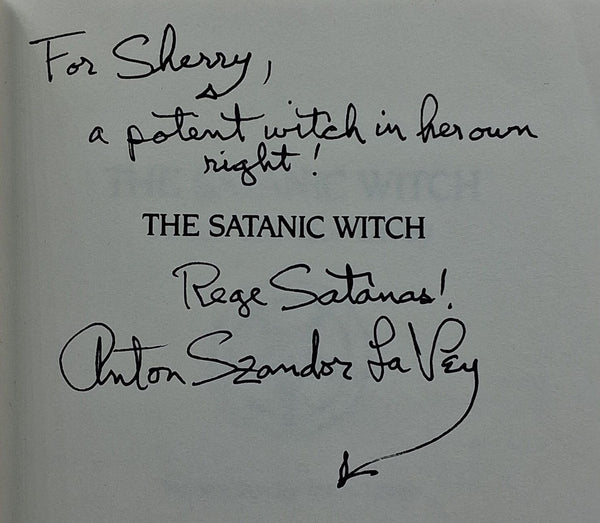 For Sherry,
a potent witch in her own
right!
THE SATANIC WITCH
Rege Satanas!
Anton Szandor LaVey